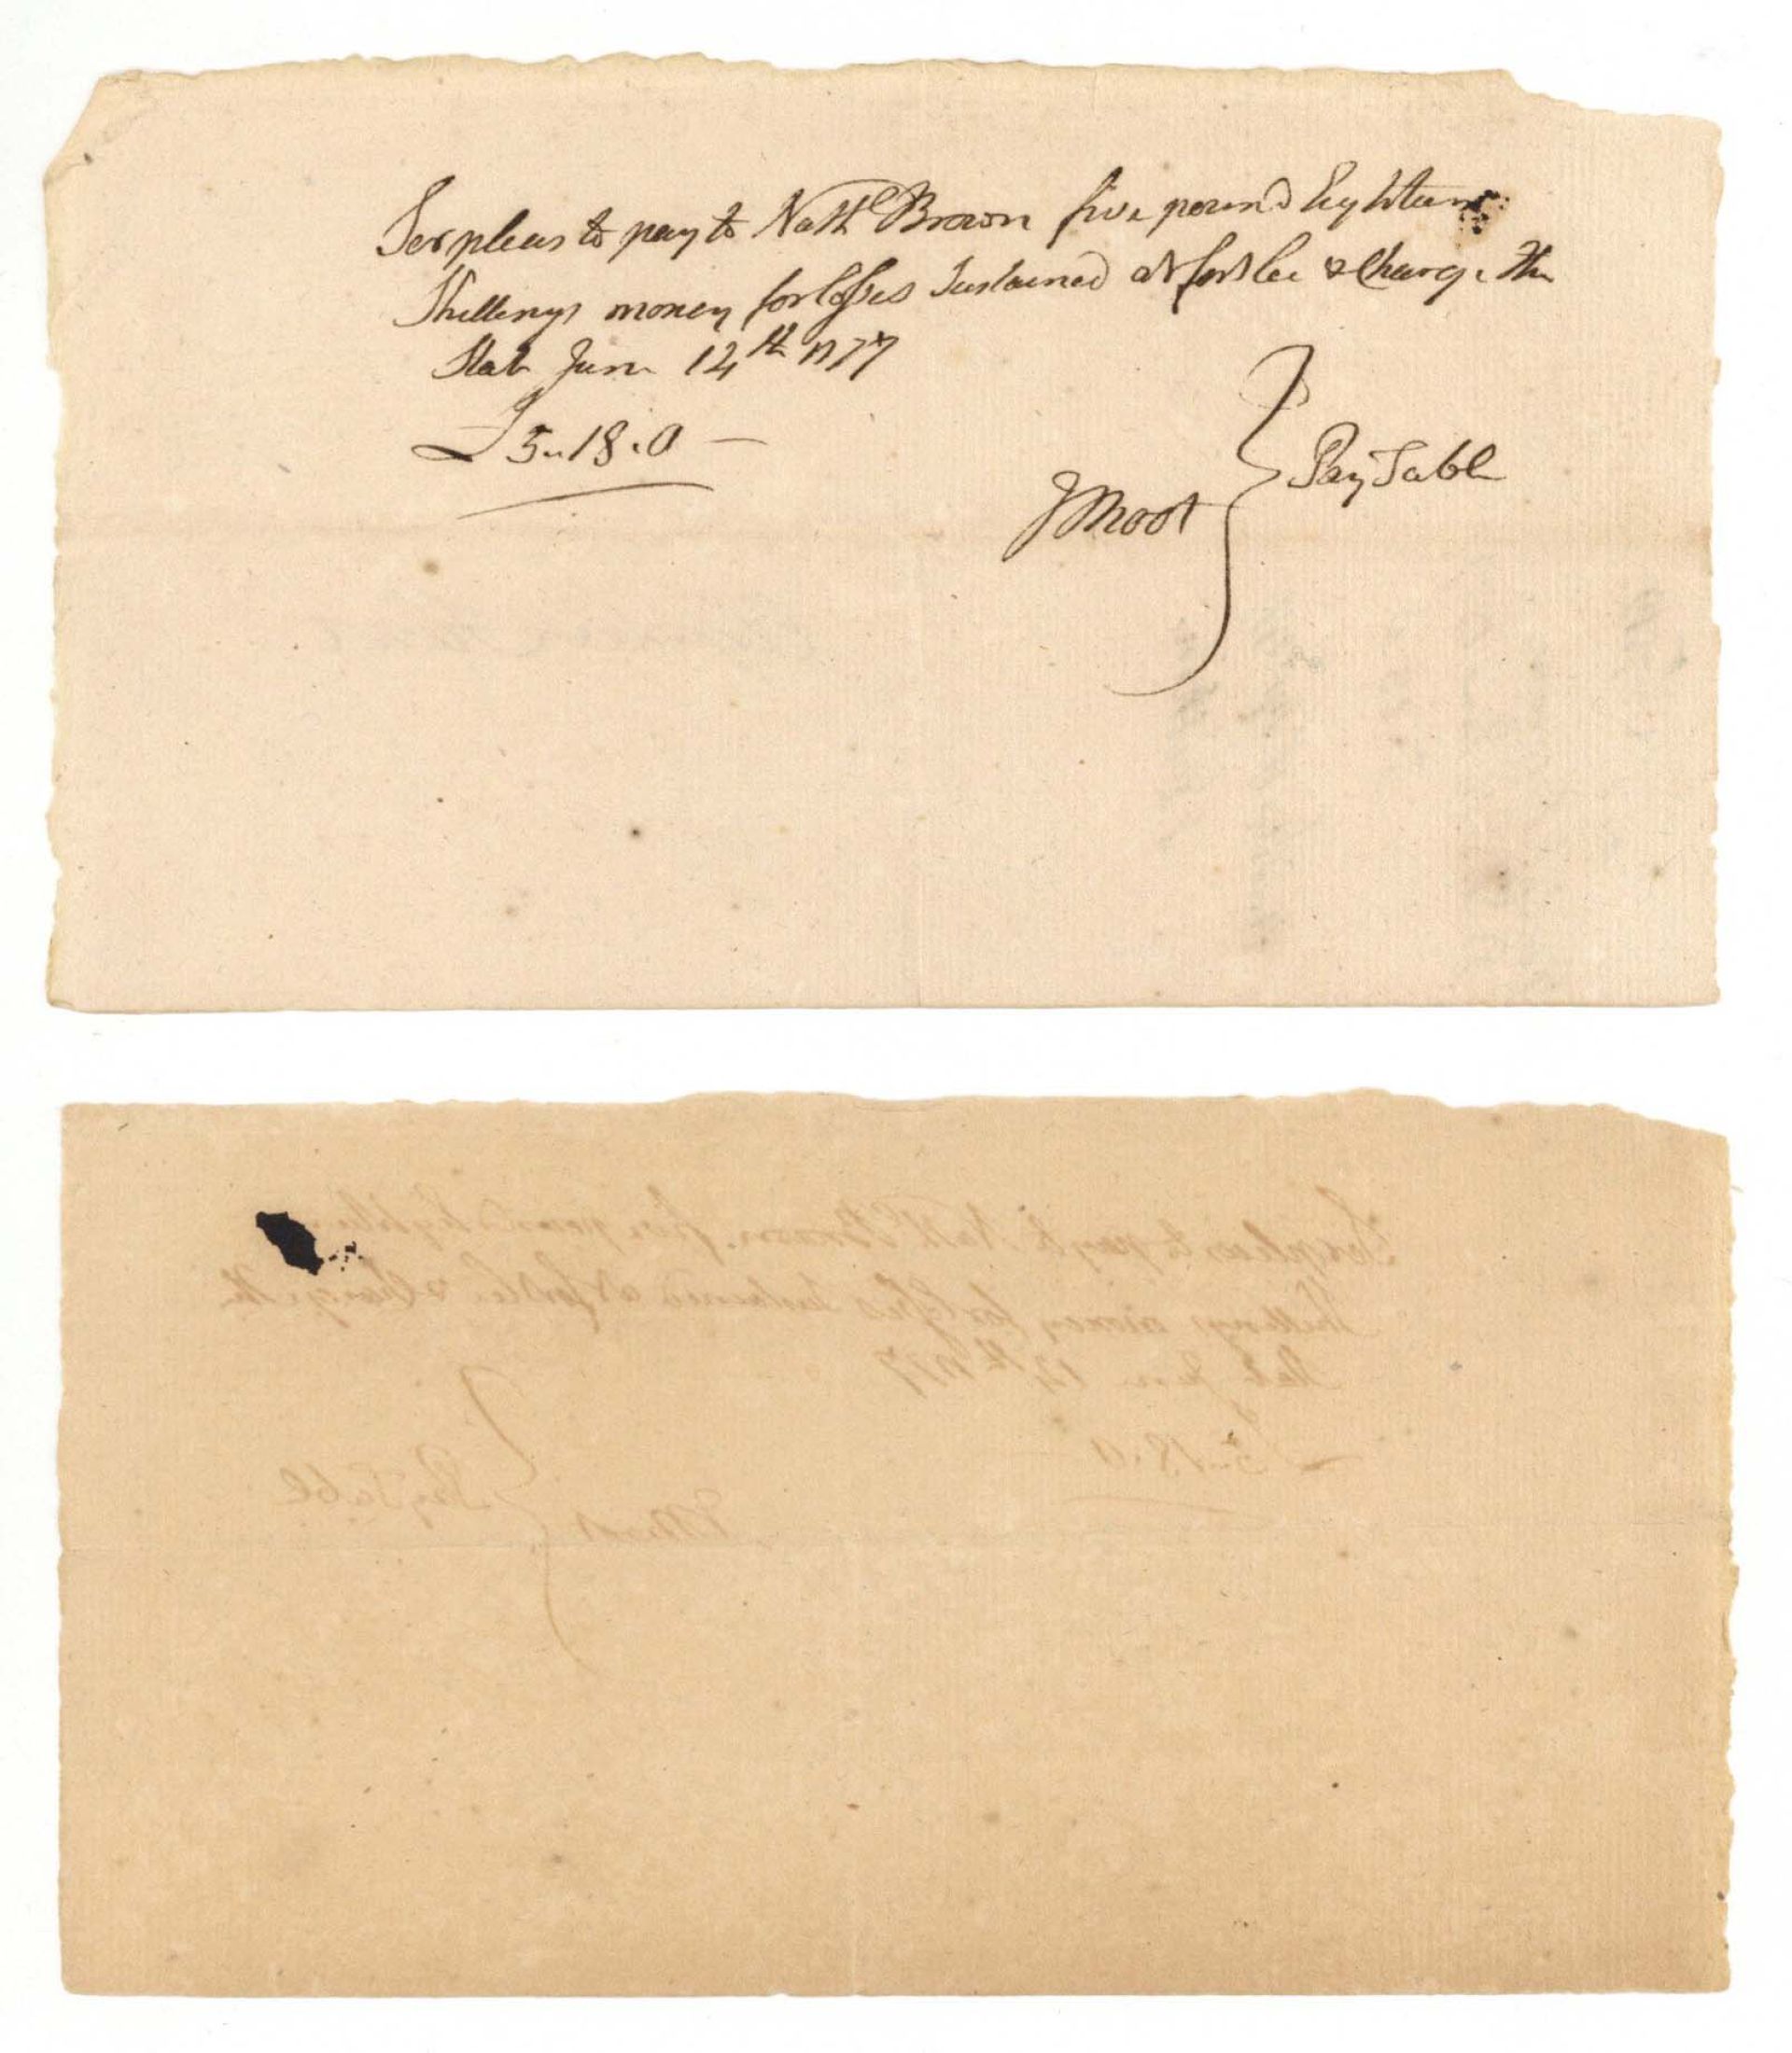 Ser pleas to pay to Nathl Brown five pound Eighteen
Shillings money for losses Sustained at fort lee & Charge the
State June 12th 1777
£5..18.0 —
JMoot } Pay Table